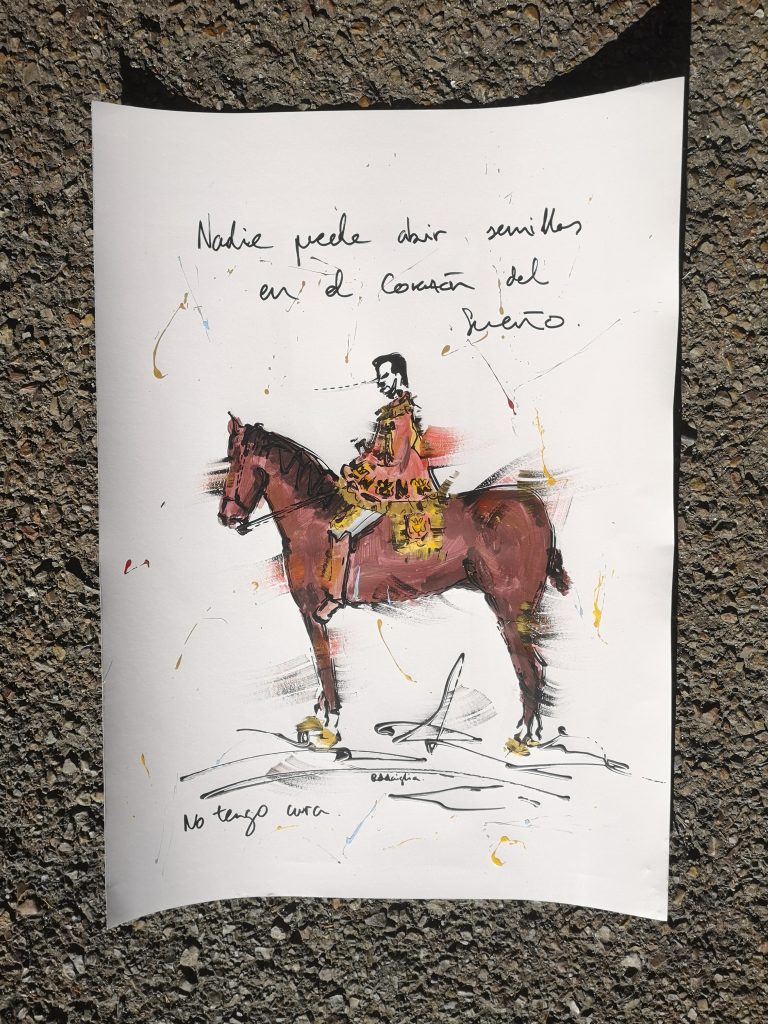 Nadie puede abrir semillas
en el Corazón del
Sueño.
No tengo cura.